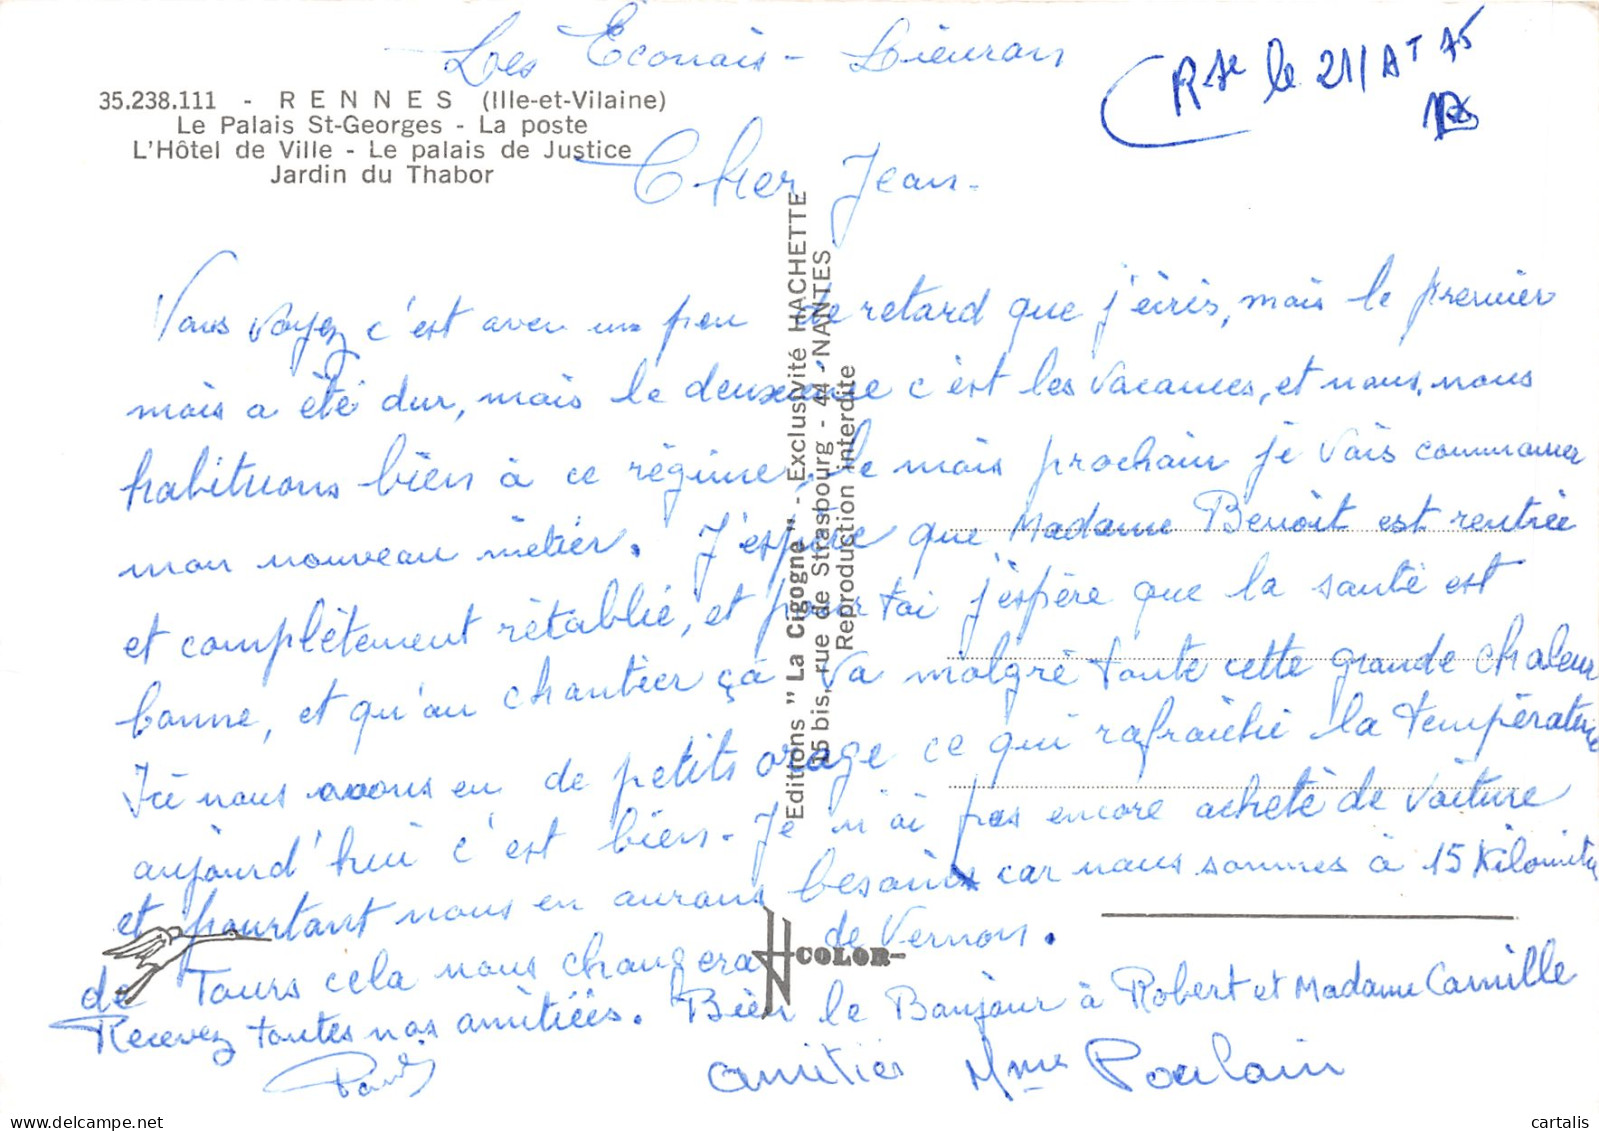 Les Ecouais - Lieuran
Rse le 21/At 75
35.238.111 - RENNES (Ille-et-Vilaine)
Le Palais St-Georges - La poste
L'Hôtel de Ville - Le palais de Justice
Jardin du Thabor
Cher Jean.
Vous voyez c'est avec un peu de retard que j'écris, mais le premier
mois a été dur, mais le deuxème c'est les vacances, et nous, nous
habituons bien à ce régime, le mois prochain je vais commancer
mon nouveau métier. J'espère que Madame Benoit est rentrée
et complètement rétablie, et pour toi j'espère que la santé est
bonne, et qu'au chantier ça va malgré toute cette grande chaleur
Ici nous avons eu de petits orage ce qui rafraichi la température
aujourd'hui c'est bien. Je n'ai pas encore acheté de voiture
et pourtant nous en aurons besoins car nous sommes à 15 Kilomètre
de Vernon.
de Tours cela nous changera
Recevez toutes nos amitiés. Bien le Bonjour à Robert et Madame Camille
amitiés Mme Poulain
Editions "La Cigogne" - Exclusivité HACHETTE
15 bis, rue de Strasbourg - 44 - NANTES
Reproduction interdite
COLOR
cartalis
www.delcampe.net